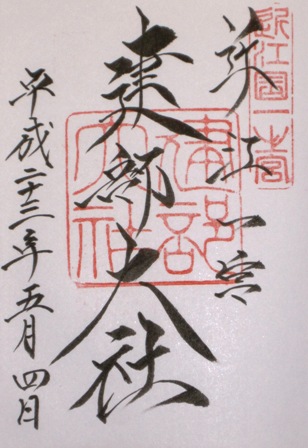 近江一宮
建部大社
平成二十三年五月四日
近江国一宮
建部大社